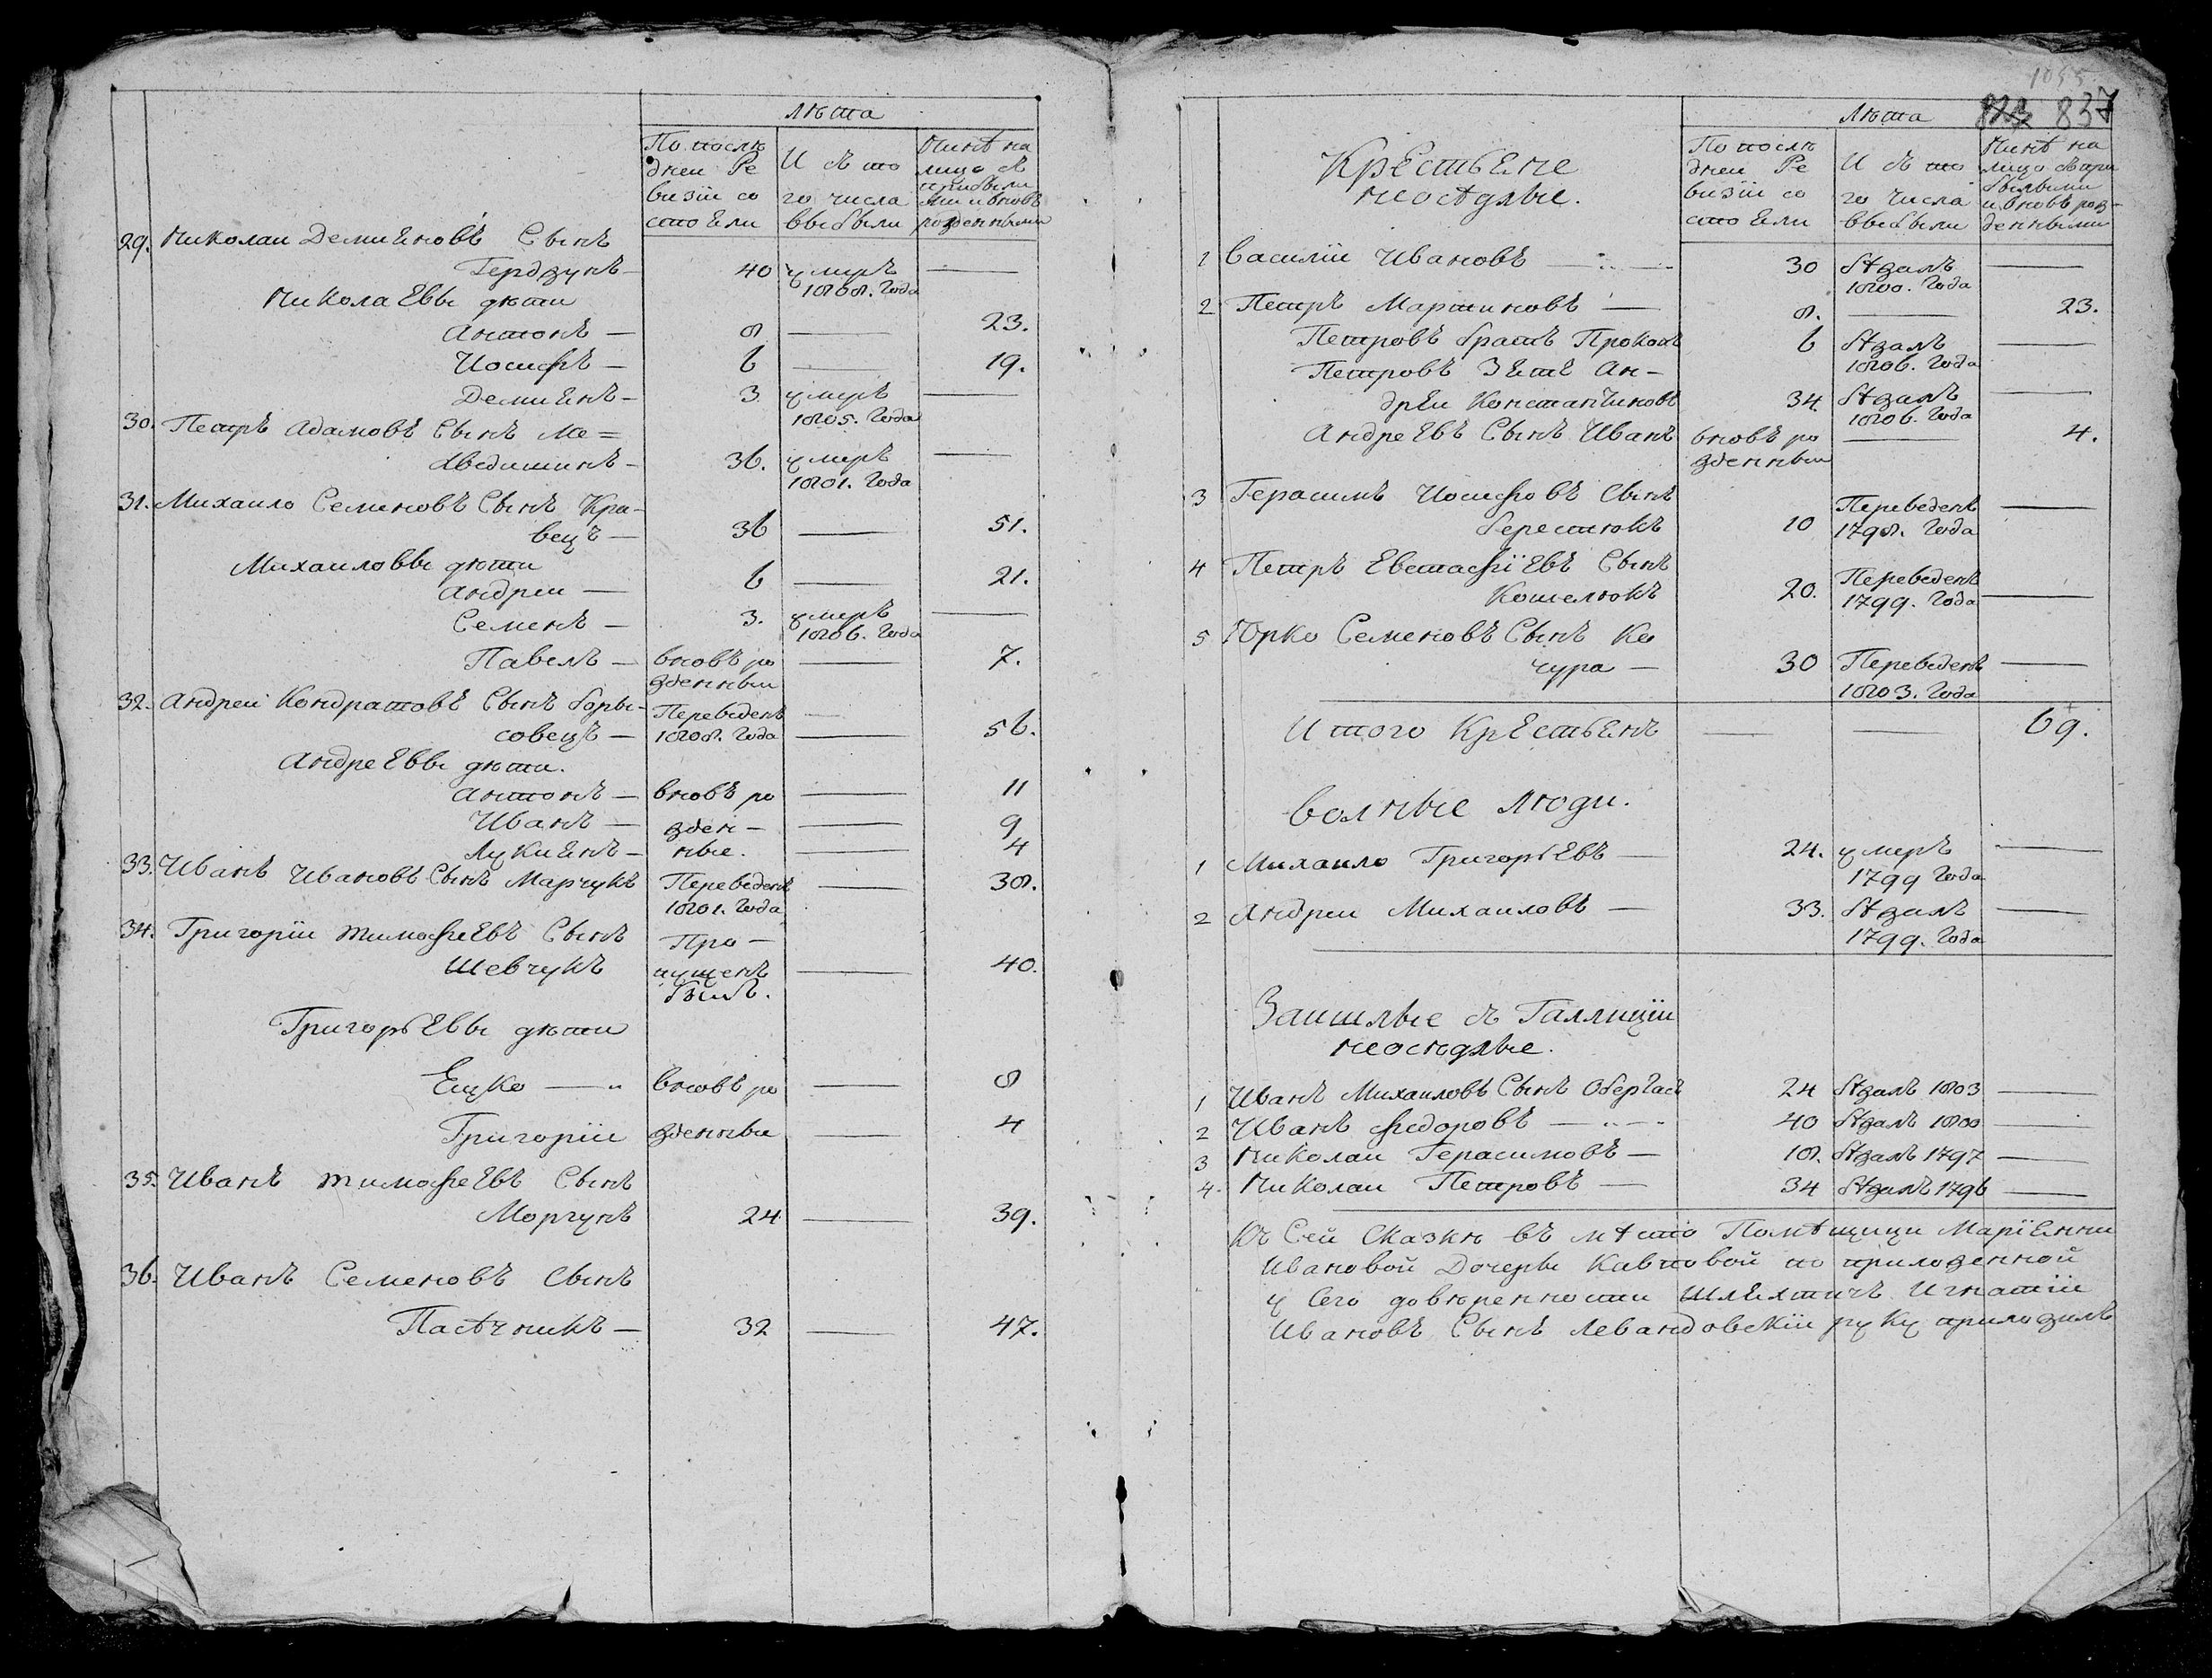 лѣта
По послѣ
дней Ре
визіи со
стояли
И съ то
го числа
выбыли
Нинѣ на
лицо съ
прибыли
ми и вновь
рожденными
29. Николай Демияновъ Сынъ
Герздунъ — 40 умеръ 1808. Года —
Николаевы дѣти
Антонъ — 8 — 23.
Иосифъ — 6 — 19.
Демиянъ — 3 умеръ 1805. Года —
30. Петръ Адамовъ Сынъ Ме=
двединикъ — 36. умеръ 1801. Года —
31. Михайло Семеновъ Сынъ Кра-
вецъ — 36 — 51.
Михайловы дѣти
Андрей — 6 — 21.
Семенъ — 3. умеръ 1806. Года —
Павелъ — вновь ро
жденный — 7.
32. Андрей Кондратовъ Сынъ Боры-
совецъ — Переведенъ 1808. Года — 56.
Андреевы дѣти.
Антонъ — вновь ро — 11
Иванъ — жден- — 9
Лукиянъ — ные. — 4
33. Иванъ Ивановъ Сынъ Марчукъ Переведенъ 1801. Года — 38.
34. Григорій Тимофеевъ Сынъ Про-
Шевчукъ пущенъ — 40.
былъ.
Григорьевы дѣти
Ецко — вновь ро — 8
Григорій жденные — 4
35. Иванъ Тимофеевъ Сынъ
Моргунъ 24 — 39.
36. Иванъ Семеновъ Сынъ
Пасѣчникъ — 32 — 47.
1055
837
лѣта
Крестьяне
неосѣдлые.
По послѣ
дней Ре
визіи со
стояли
И съ то
го числа
выбыли
Нинѣ на
лицо съ при
былыми
и вновь рож-
денными
1 Василій Ивановъ — 30 бѣжалъ 1800. Года —
2 Петръ Мартиновъ — 8. — 23.
Петровъ братъ Прокопъ 6 бѣжалъ 1806. Года —
Петровъ Зять Ан-
дрей Константиновъ 34. бѣжалъ 1806. Года —
Андреевъ Сынъ Иванъ вновь ро
жденный — 4.
3 Герасимъ Иосифовъ Сынъ
берестюкъ 10 Переведенъ 1798. Года —
4 Петръ Евстафіевъ Сынъ
Кошелюкъ 20. Переведенъ 1799. Года —
5 Юрко Семеновъ Сынъ Ко
чура — 30 Переведенъ 1803. Года —
Итого Крестьянъ — — 69.
Волные люди.
1 Михайло Григорьевъ — 24. умеръ 1799 Года —
2 Андрей Михайловъ — 33. бѣжалъ 1799. Года —
Зашлые съ Галлиціи
неосѣдлые.
1 Иванъ Михайловъ Сынъ Оберчасъ 24 бѣжалъ 1803 —
2 Иванъ Федоровъ — 40 бѣжалъ 1800 —
3 Николай Герасимовъ — 18. бѣжалъ 1797 —
4. Николай Петровъ — 34 бѣжалъ 1796 —
Къ Сей Сказкѣ въ мѣсто Помѣщици Маріянни
Ивановой Дочеры Кавповой по приложенной
у Сего довѣренности Шляхтичъ Игнатій
Ивановъ Сынъ Левандовскій руку приложилъ